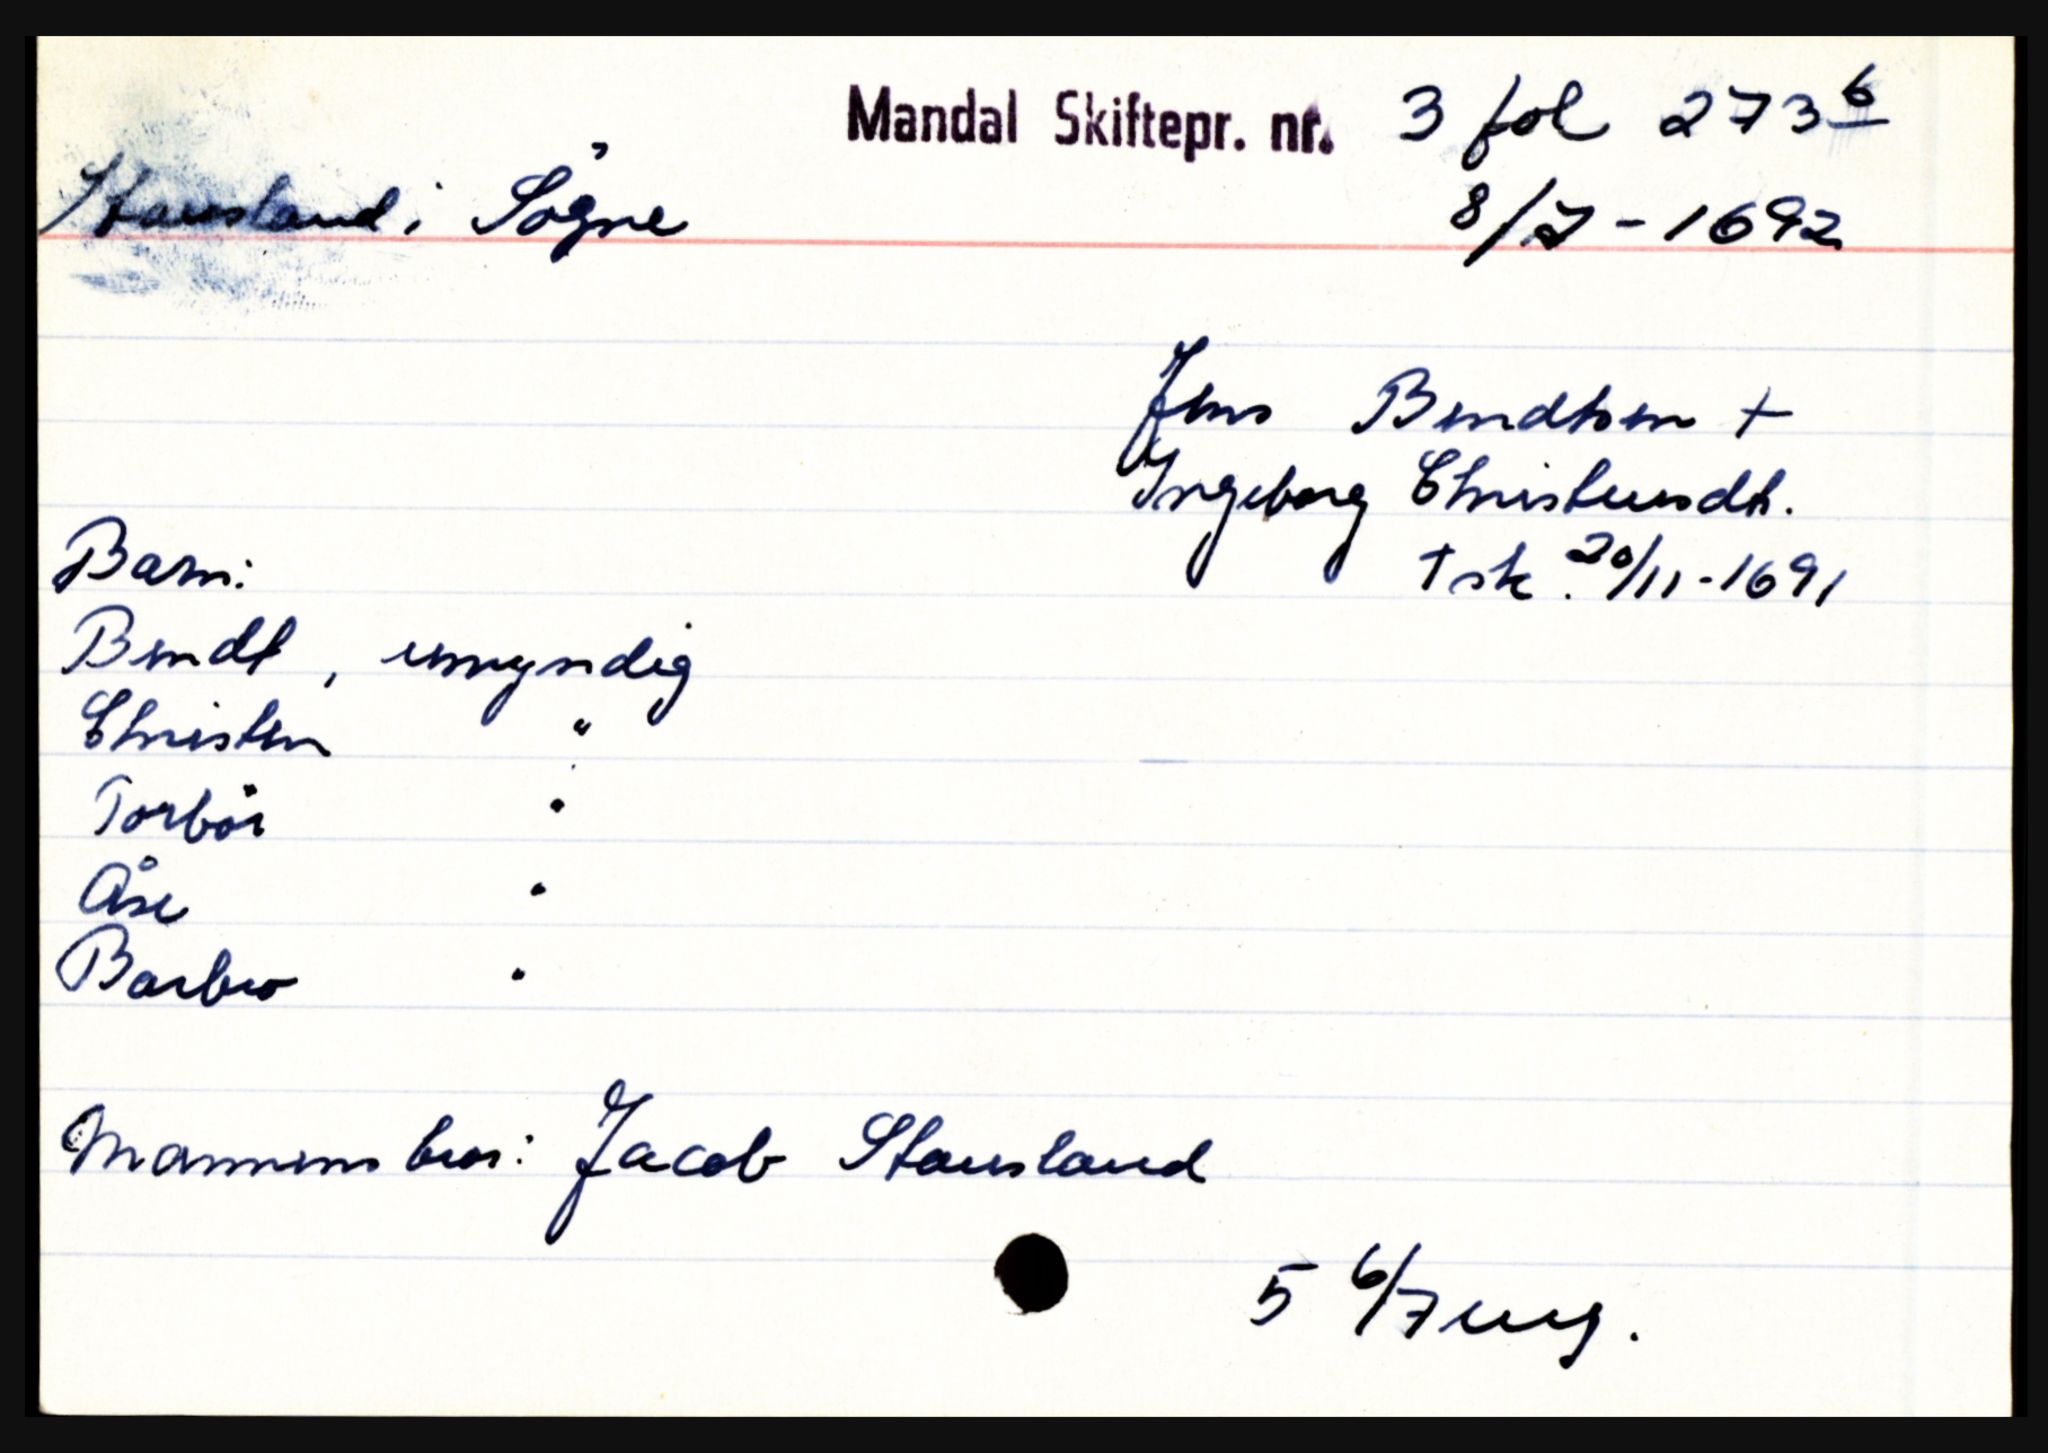 Mandal Skiftepr. nr. 3 fol 273 b
Stausland i Søgne 8/7-1692
Jens Bendtsen +
Ingeborg Christensdt.
+ sk. 20/11-1691
Barn:
Bendt, umyndig
Christen "
Torbör "
Åse "
Barbro "
Mannens bror: Jacob Stausland
5 6/7 ung.